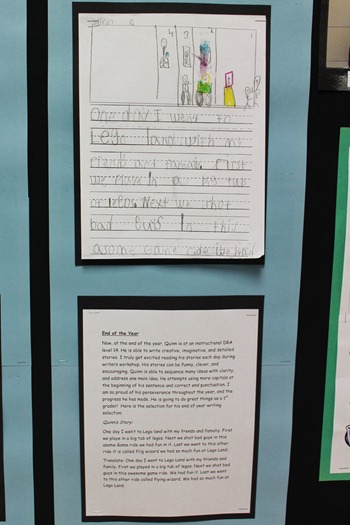 4 3 2 1
One day I went to
Lego land with mi
friends and famale. First
we plave in a big tub
of legos. Next we shot
bad guys in this
asome Game ride. We had
End of the Year
Now, at the end of the year, Quinn is at an instructional DRA
level 14. He is able to write creative, imaginative, and detailed
stories. I truly get excited reading his stories each day during
writers workshop. His stories can be funny, clever, and
encouraging. Quinn is able to sequence many ideas with clarity,
and address one main idea. He attempts using more capitals at the
beginning of his sentence and correct end punctuation. I
am so proud of his perseverance throughout the year, and the
progress he has made. He is going to do great things as a 1st
grader! Here is the selection for his end of year writing
selection.
Quinn's Story:
One day I want to Lego land with my frends and family. First
we played in a big tub of legos. Next we shot bad guys in this
osem Game ride we had fun in it. Last we went to this other
ride it is called Flig wizard we had so much fun at Lego Land.
Translate: One day I went to Lego Land with my friends and
family. First we played in a big tub of legos. Next we shot bad
guys in this awesome game ride. We had fun it. Last we want
to this other ride called flying wizard. We had so much fun at
Lego Land.